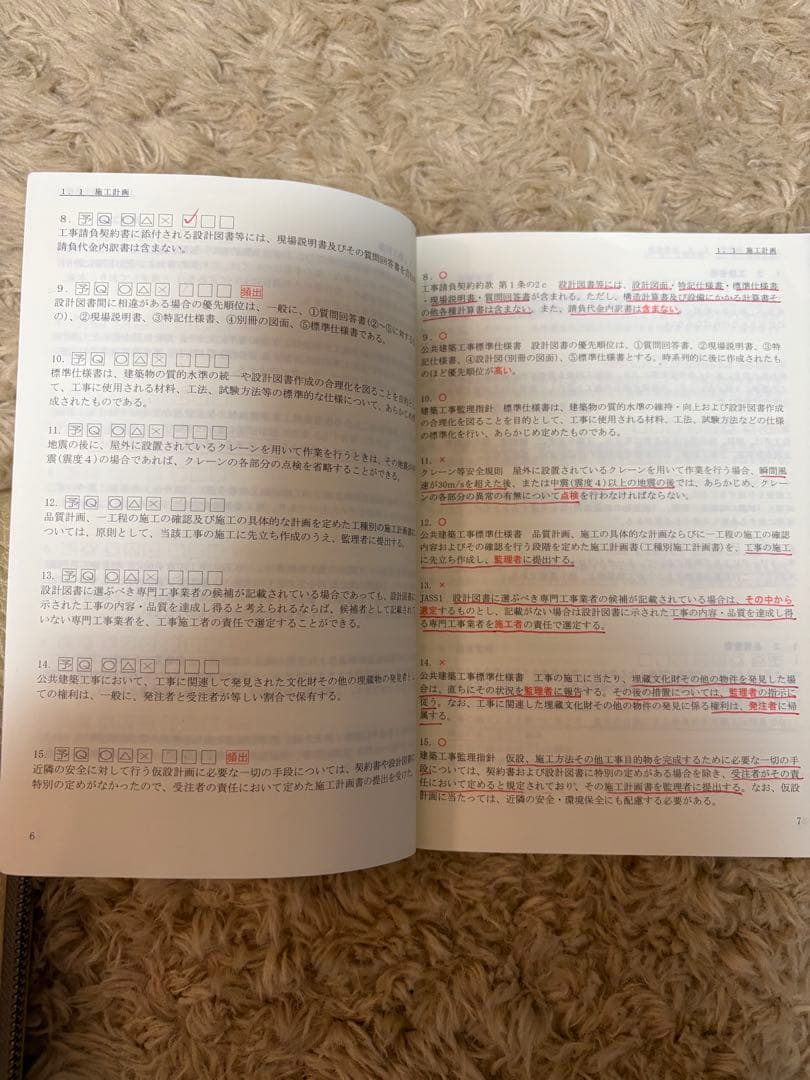 1．1　施工計画
8．予 Q ○ △ × ✓ □ □
工事請負契約書に添付される設計図書等には、現場説明書及びその質問回答書を含み、
請負代金内訳書は含まない。
9．予 Q ○ △ × □ □ □ 頻出
設計図書間に相違がある場合の優先順位は、一般に、①質問回答書(②～⑤に対する
の)、②現場説明書、③特記仕様書、④別冊の図面、⑤標準仕様書である。
10．予 Q ○ △ × □ □ □
標準仕様書は、建築物の質的水準の統一や設計図書作成の合理化を図ることを目的とし
て、工事に使用される材料、工法、試験方法等の標準的な仕様について、あらかじめ作
成されたものである。
11．予 Q ○ △ × □ □ □
地震の後に、屋外に設置されているクレーンを用いて作業を行うときは、その地震が
震(震度４)の場合であれば、クレーンの各部分の点検を省略することができる。
12．予 Q ○ △ × □ □ □
品質計画、一工程の施工の確認及び施工の具体的な計画を定めた工種別の施工計画書に
ついては、原則として、当該工事の施工に先立ち作成のうえ、監理者に提出する。
13．予 Q ○ △ × □ □ □
設計図書に選ぶべき専門工事業者の候補が記載されている場合であっても、設計図書に
示された工事の内容・品質を達成し得ると考えられるならば、候補者として記載されて
いない専門工事業者を、工事施工者の責任で選定することができる。
14．予 Q ○ △ × □ □ □
公共建築工事において、工事に関連して発見された文化財その他の埋蔵物の発見者とし
ての権利は、一般に、発注者と受注者が等しい割合で保有する。
15．予 Q ○ △ × □ □ □ 頻出
近隣の安全に対して行う仮設計画に必要な一切の手段については、契約書や設計図書に
特別の定めがなかったので、受注者の責任において定めた施工計画書の提出を受けた。
6
1．1　施工計画
8．○
工事請負契約約款 第１条の2ｃ　設計図書等には、設計図面・特記仕様書・標準仕様書
・現場説明書・質問回答書が含まれる。ただし、構造計算書及び設備にかかる計算書そ
の他各種計算書は含まない。また、請負代金内訳書は含まない。
9．○
公共建築工事標準仕様書　設計図書の優先順位は、①質問回答書、②現場説明書、③特
記仕様書、④設計図(別冊の図面)、⑤標準仕様書とする。時系列的に後に作成されたも
のほど優先順位が高い。
10．○
建築工事監理指針　標準仕様書は、建築物の質的水準の維持・向上および設計図書作成
の合理化を図ることを目的として、工事に使用される材料、工法、試験方法などの仕様
の標準化を行い、あらかじめ定めたものである。
11．×
クレーン等安全規則　屋外に設置されているクレーンを用いて作業を行う場合、瞬間風
速が30m/sを超えた後、または中震(震度４)以上の地震の後では、あらかじめ、クレー
ンの各部分の異常の有無について点検を行わなければならない。
12．○
公共建築工事標準仕様書　品質計画、施工の具体的な計画ならびに一工程の施工の確認
内容およびその確認を行う段階を定めた施工計画書(工種別施工計画書)を、工事の施工
に先立ち作成し、監理者に提出する。
13．×
JASS1　設計図書に選ぶべき専門工事業者の候補が記載されている場合は、その中から
選定するものとし、記載がない場合は設計図書に示された工事の内容・品質を達成し得
る専門工事業者を施工者の責任で選定する。
14．×
公共建築工事標準仕様書　工事の施工に当たり、埋蔵文化財その他の物件を発見した場
合は、直ちにその状況を監理者に報告する。その後の措置については、監理者の指示に
従う。なお、工事に関連した埋蔵文化財その他の物件の発見に係る権利は、発注者に帰
属する。
15．○
建築工事監理指針　仮設、施工方法その他工事目的物を完成するために必要な一切の手
段については、契約書および設計図書に特別の定めがある場合を除き、受注者がその責
任において定めると規定されており、その施工計画書を監理者に提出する。なお、仮設
計画に当たっては、近隣の安全・環境保全にも配慮する必要がある。
7